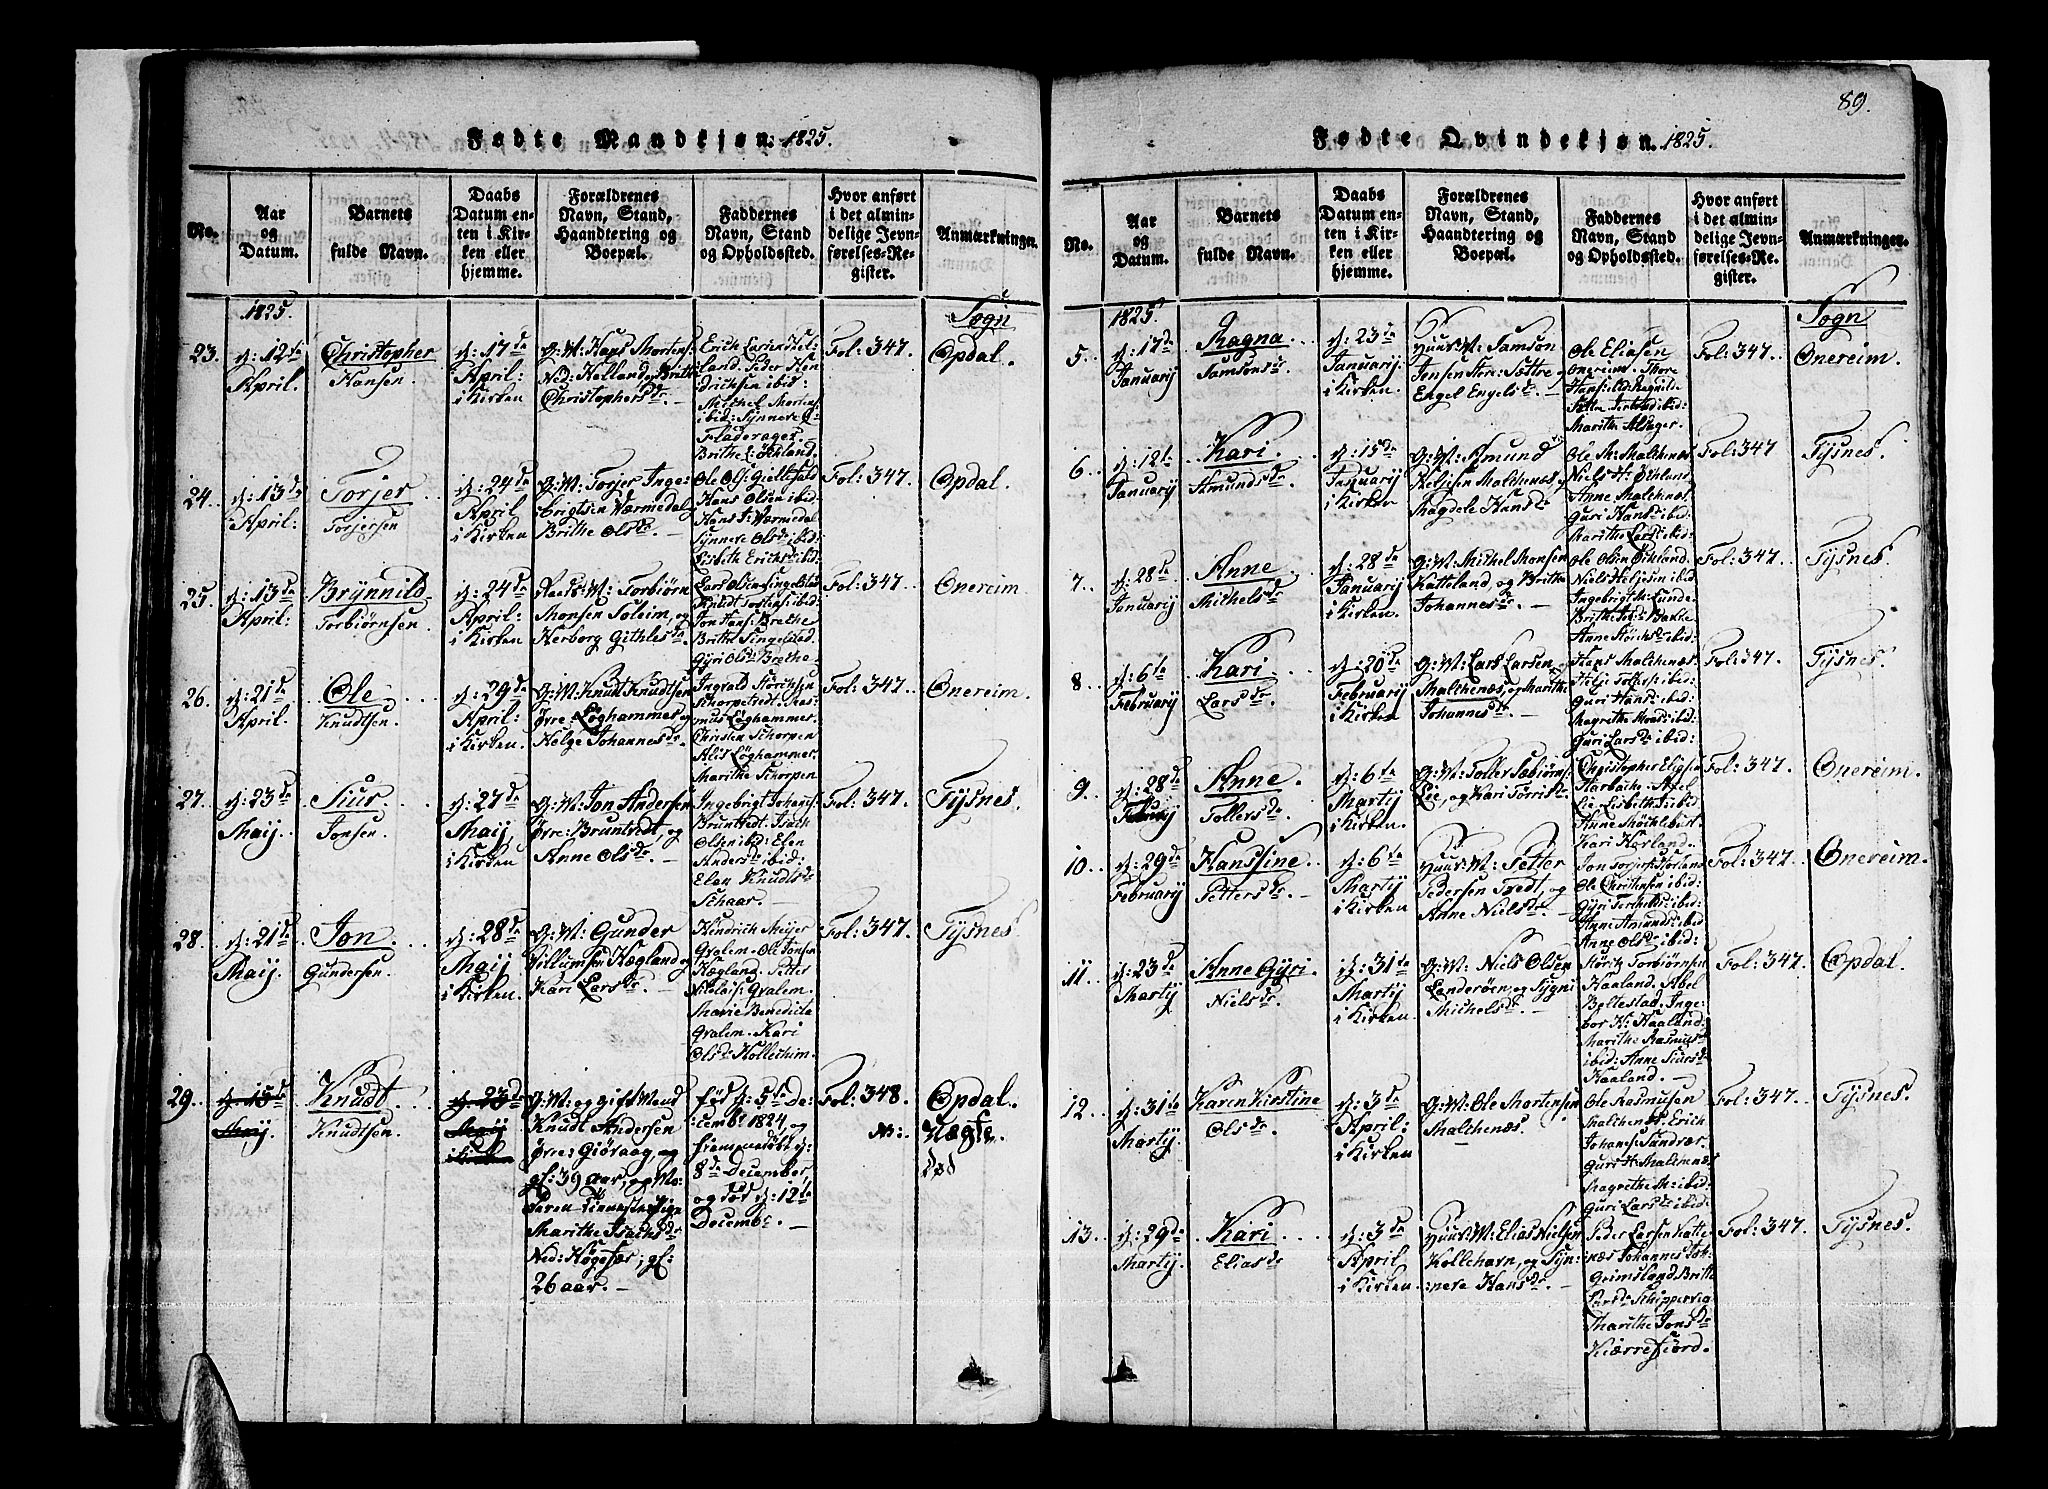 89.
Fødte Mandkjøn: 1825.
No.
Aar
og
Datum.
Barnets
fulde Navn.
Daabs
Datum en-
ten i Kir-
ken eller
hjemme.
Forældrenes
Navn, Stand,
Haandtering og
Boepæl.
Faddernes
Navn, Stand
og Opholdssted.
Hvor anført
i det almin-
delige Jevn-
førelses-Re-
gister.
Anmærkninger.
1825.
Sogn
23.
d: 12te
April.
Christopher
Hansen.
d: 17de
April:
i Kirken
G: M: Hans Mortens:
Ned: Helland, Brithe
Christophersdr. —
land. Peder Hen
dricksen ibid:
Michel Mortens:
ibid: Synneve
Fladerager.
Brithe L: Öchland.
Fol: 347.
Opdal.
24.
d: 13de
April:
Torjer
Torjersen
d: 24de
April
i Kirken
G: M: Torjer Inge
brigtsen Wærmedal
Brithe Olsdr. —
Ole Ols: Gielkefald
Hans Olsen ibid:
Hans T: Wærmedal
Synneve Olsdr ibid:
Lisbeth Ericksdr ibid:
Fol: 347.
Opdal
25.
d: 13de
April:
Brynnild
Torbiørnsen
d: 24de
April:
i Kirken
Torbiørn
Monsen Soleim, og
Herborg Githlesdr
Lars Olsen Singelstad
Knudt Tostens: ibid:
Jon Hans: Brethe
Brithe Singelstad.
Gyri Olsdr Brethe
Fol: 347.
Onereim
26.
d: 21de
April
Ole
Knudtsen.
d: 29de
April:
i Kirken.
G: M: Knudt Knudtsen
Øvre: Løghammer, og
Helge Johannesdr. —
Ingvald Størchsen
Schorpetvedt. Ras-
mus Løghammer.
Christen Schorpen
Alis Løghammer.
Marithe Schorpen
Fol: 347.
Onereim.
27.
d: 23de
Maij.
Siur
Jonsen.
d: 27de
Maij
i Kirken
G: M: Jon Andersen
Øvre: Bruntvedt, og
Anne Olsdr. —
Ingebrigt Johans:
Bruntvedt. Isach
Olsen ibid: Elen
Andersdr ibid:
Elen Knudtsdr
Schaar. —
Fol: 347.
Tysnes.
28.
d: 21de
Maij.
Jon.
Gundersen.
d: 28de
Maij
i Kirken.
G: M: Gunder
Willumsen Hægland og
Kari Larsdr. —
Hindrich Meijer
Gvalem. Ole Jonsen
Hægland. Petter
Nicolais: Gvalem.
Marie Benedicte
Gvalem. Kari
Olsdr Hollechim.
Fol: 347.
Tysnes.
29.
d: 15de
Maij.
Knudt
Knudtsen.
d: 23de
Maij
i Kirken
G: M: og gift Mand
Knudt Andersen
Øvre: Giøraag, og
gl: 39 aar, og Mo-
deren Tienestepige
Marithe Isachsdr
Ned: Høgefær, gl:
26 aar. —
fød d: 5te De-
cembr 1824, og
hiemmedøbt d:
8de December
og død d: 12te
Decembr. —
Fol: 348.
Opdal.
Uægte.
død
Fødte Qvindekjøn. 1825.
No.
Aar
og
Datum.
Barnets
fulde Navn.
Daabs
Datum en-
ten i Kir-
ken eller
hjemme.
Forældrenes
Navn, Stand,
Haandtering og
Boepæl.
Faddernes
Navn, Stand
og Opholdssted.
Hvor anført
i det almin-
delige Jevn-
førelses-Re-
gister.
Anmærkninger.
1825.
Sogn
5.
d: 17de
Januarij
Ragna
Samsonsdr
d: 23de
Januarij.
i Kirken.
Huus: M: Samson
Jensen Sør: Sættre og
Engel Engelsdr. —
Ole Eliasen
Onereim. Thore
Hans: ibid: Ragnilde
Sættre Jertrud ibid:
Marithe Alsager.
Fol: 347.
Onereim.
6.
d: 12te
Januarij
Kari.
Amundsdr.
d: 15de
Januarij
i Kirken
G: M: Amund
Reljesen Malchenæs, og
Magdele Hansdr
Ole M: Malchenæs.
Niels H: Økland
Anne Malchenæs.
Guri Hansdr ibid:
Marithe Larsdr ibid:
Fol: 347
Tysnes.
7.
d: 28de
Januarij
Anne
Michelsdr
d: 28de
Januarij
i Kirken
G: M: Michel Monsen
Kateland, og Brithe
Johannesdr. —
Ole Olsen Økland.
Niels Heljesen ibid
Ingebrigth Lunde
Brithe Bakke
Anne Størchsdr ibid:
Fol: 347.
Tysnes.
8.
d: 6te
Februarij
Kari
Larsdr.
d: 20de
Februarij
i Kirken
G: M: Lars Larsen
Malchenæs, og Marithe
Johannesdr. —
Hans Malchenæs.
Helje Tollefs: ibid:
Guri Hansdr ibid:
Magrethe Monsdr ibid:
Guri Larsdr ibid:
Fol: 347.
Tysnes.
9.
d: 28de
Februarij
Anne
Tollersdr
d: 6te
Martij
i Kirken.
G: M: Toller Sæbiørns:
Lie, og Kari Torrisdr
Christopher Eligsen
Harbache. Axel
Lie. Lisbeth T: ibid:
Anne Møchleburst.
Kari Hovland.
Fol: 347.
Onereim.
10.
d: 29de
Februarij
Hansine.
Pettersdr.
d: 6te
Martij
i Kirken
Huus: M: Petter
Pedersen Tvedt, og
Anne Nielsdr. —
Jon Torjers: Hovland
Ole Christensen ibid:
Gyri Terchelsdr ibid:
Anne Amundsdr ibid:
Anne Olsdr ibid:
Fol: 347.
Onereim.
11.
d: 23de
Martij
Anne Gyri
Nielsdr.
d: 31te
Martij
i Kirken.
G: M: Niels Olsen
Landerøen, og Sygni
Michelsdr. —
Størch Torbiørnsen
Haaland. Abel
Beltestad, Inge-
bor K: Haaland.
Marithe Rasmusdr
ibid: Anne Siursdr
Haaland. —
Fol: 347.
Opdal.
12.
d: 31te
Martij.
Karen Kirstine
Olsdr.
d: 3de
April:
i Kirken
G: M: Ole Mortensen
Malchenæs. —
Ole Rasmusen
Malchenæs. Erich
Johans: Sundvær.
Guri H: Malchenæs
Magrethe M: ibid:
Guri Larsdr ibid:
Fol: 347.
Tysnes.
13.
d: 29de
Martij.
Kari
Eliasdr
d: 3de
April
i Kirken
Huus: M: Elias Nielsen
Kollehavn, og Syn-
neve Hansdr. —
Peder Larsen Natte-
næs Johannes Joh:
Grimsland. Brith
Larsdr Schippervig
Marithe Jonsdr
Kierrefiord.
Fol: 347.
Tysnes.